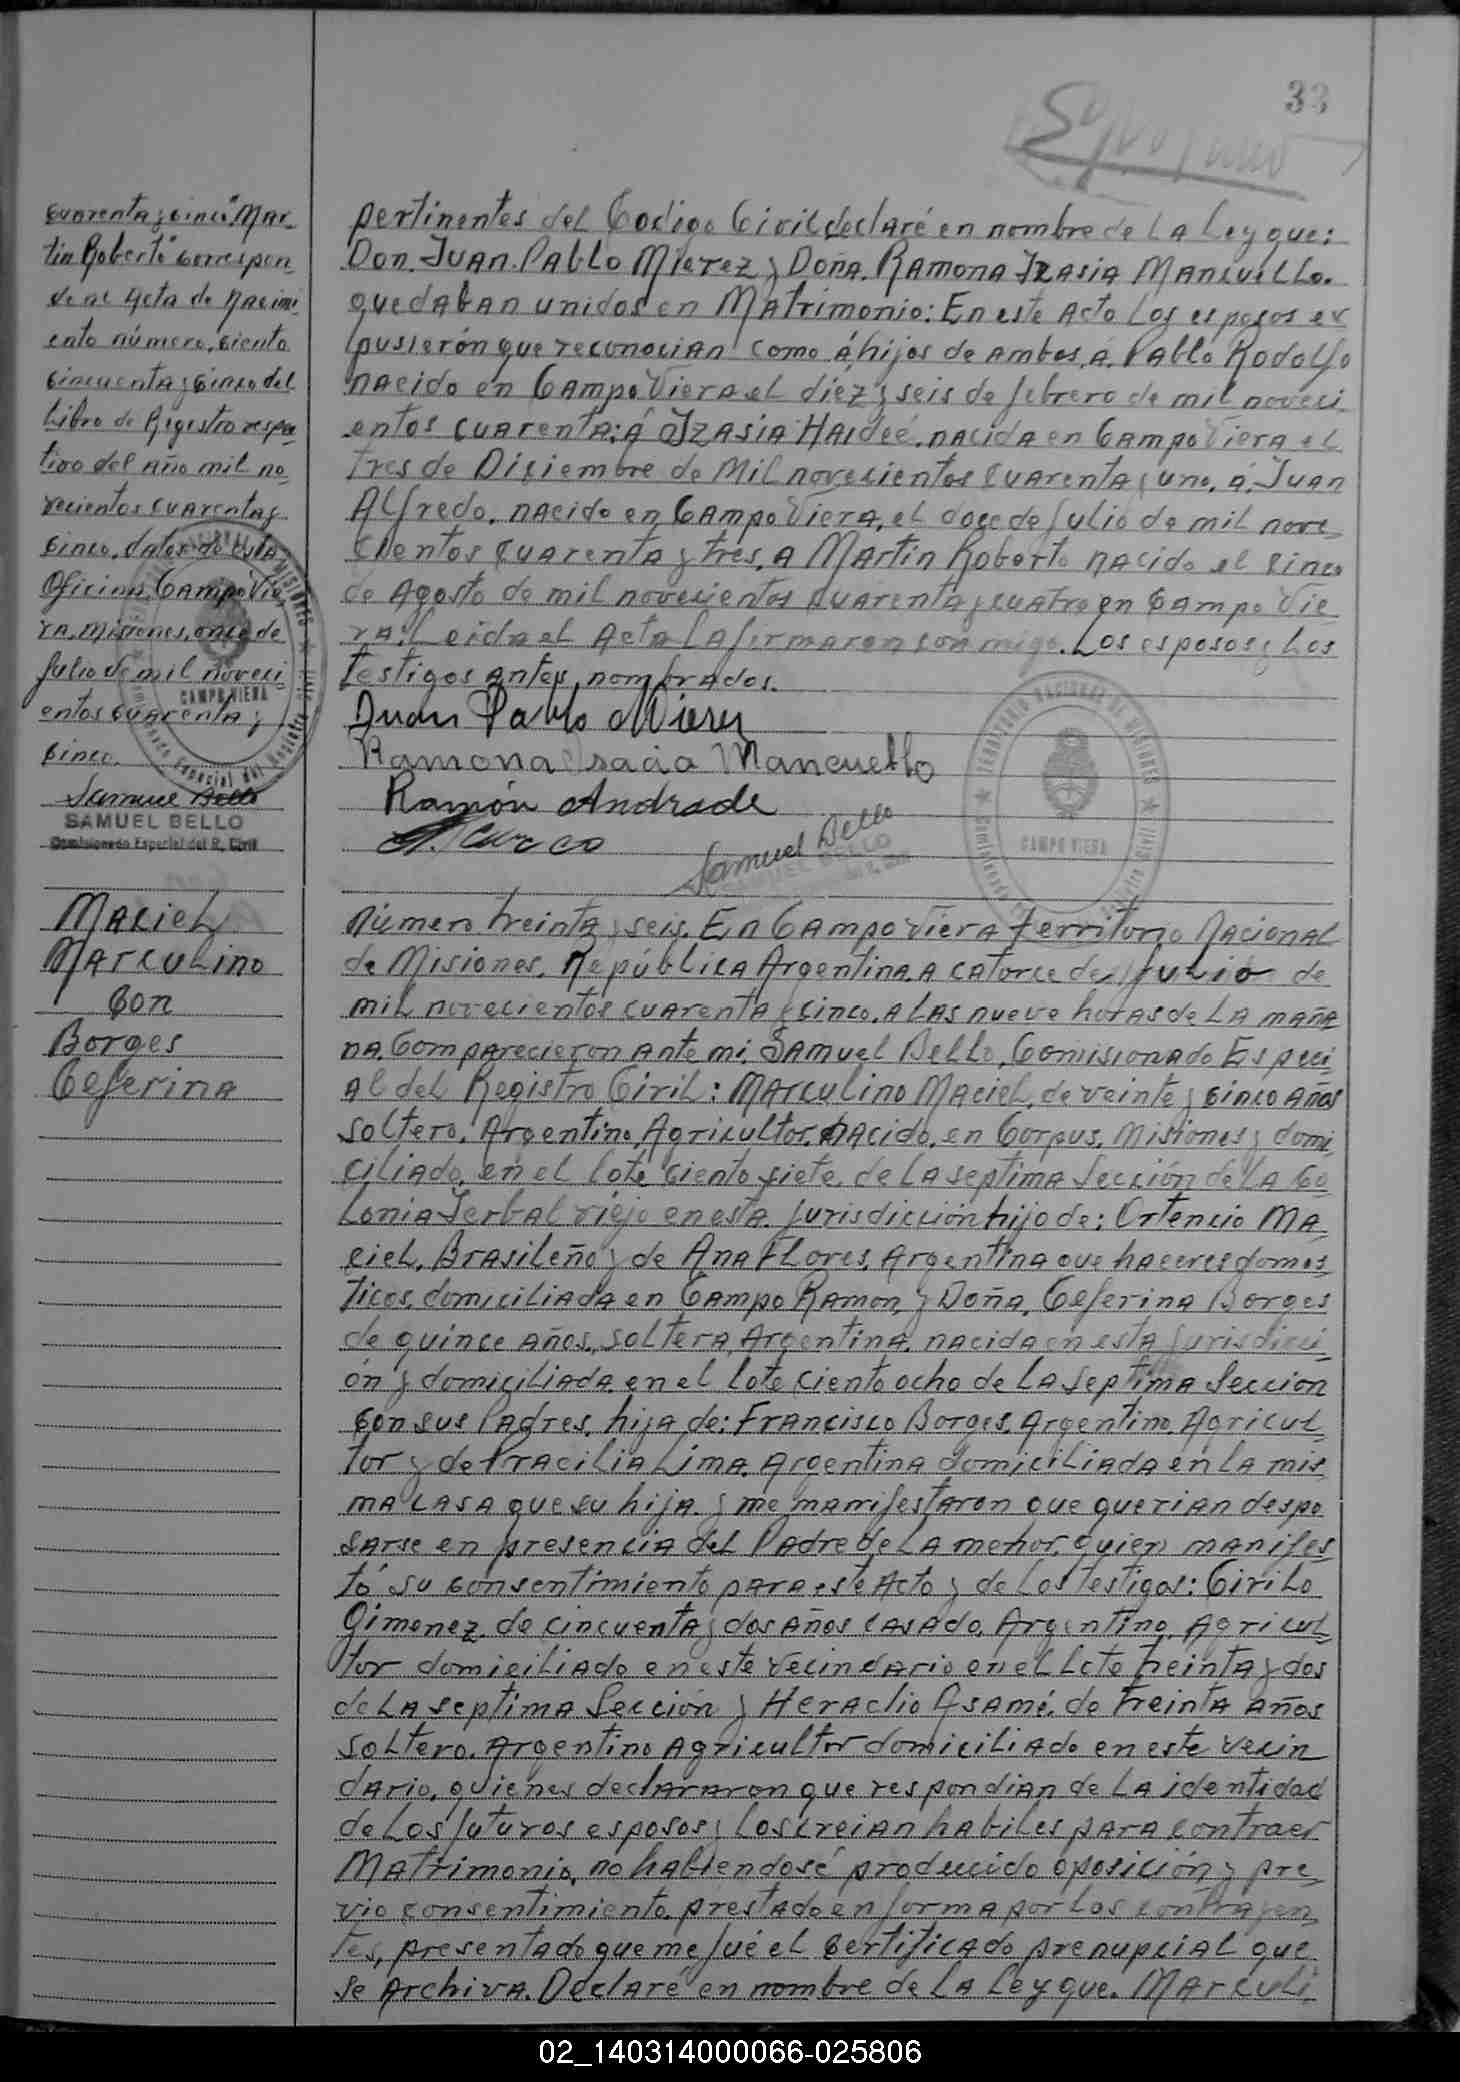 33
cuarenta y cinco "Mar-
tin Roberto" correspon-
de al Acta de Nacimi-
ento número, ciento
cincuenta y cinco del
Libro de Registro respec-
tivo del Año mil no-
vecientos cuarenta y
cinco,
Oficina, Campo Vie-
ra, Misiones, once de
Julio de mil noveci-
entos cuarenta y
cinco.
Samuel Bello
SAMUEL BELLO
Comisionado Especial del R. Civil
pertinentes del Codigo Civil, declaré en nombre de la Ley que:
Don. Juan. Pablo Mierez y Doña. Ramona Izasia Mancuello.
quedaban unidos en Matrimonio: En este Acto los esposos ex
pusierón que reconocian como á hijos de ambos, á. Pablo Rodolfo
nacido en Campo Viera el diez y seis de febrero de mil noveci-
entos cuarenta: á Izasia Haideé, nacida en Campo Viera el
tres de Diciembre de Mil novecientos cuarenta y uno, á. Juan
Alfredo, nacido en Campo Viera, el doce de Julio de mil nove-
cientos cuarenta y tres, a Martin Roberto nacido el cinco
de Agosto de mil novecientos cuarenta y cuatro en Campo Vie-
ra: Leida el Acta la firmaron con migo. Los esposos y Los
testigos antes, nombrados.
Juan Pablo Mierez
Ramona Isacia Mancuello
Ramón Andrade
Samuel Bello
SAMUEL BELLO
TERRITORIO NACIONAL DE MISIONES
CAMPO VIERA
Maciel
Marculino
Con
Borges
Ceferina
Número treinta y seis. En Campo Viera territorio Nacional
de Misiones, República Argentina, a catorce de Julio de
mil novecientos cuarenta y cinco, a las nueve horas de la maña
na. Comparecieron ante mi: Samuel Bello, Comisionado Especi-
al del Registro Civil: Marculino Maciel, de veinte y cinco Años
soltero, Argentino, Agricultor, nacido, en Corpus, Misiones y domi-
ciliado, en el lote ciento siete, de la septima Sección de la Co-
lonia Yerbal viejo en esta Jurisdicción hijo de: Ortencio Ma-
ciel, Brasileño y de Ana Flores, Argentina que haceres domes-
ticos, domiciliada en Campo Ramon, y Doña, Ceferina Borges
de quince años, soltera, Argentina, nacida en esta Jurisdicci-
ón y domiciliada en el lote ciento ocho de la Septima Seccion
con sus Padres, hija de: Francisco Borges, Argentino, Agricul-
tor y de Pracilia Lima, Argentina domiciliada en la mis-
ma casa que su hija y me manifestaron que querian despo
sarse en presencia del Padre de la menor, quien manifes-
tó su consentimiento para este Acto y de los testigos: Cirilo
Gimenez de cincuenta y dos años casado, Argentino, Agricul-
tor domiciliado en este vecindario en el Lote treinta y dos
de la septima Sección y Heraclio Asamé, de treinta años
soltero, Argentino Agricultor domiciliado en este vecin
dario, quienes declararon que respondian de la identidad
de los futuros esposos y los creian habiles para contraer
Matrimonio, no habiendosé producido oposición y pre-
vio consentimiento, prestado en forma por los contrayen-
tes, presentado que me fué el certificado prenupcial que
se Archiva. Declaré en nombre de la Ley que. Marculi-
02_140314000066-025806